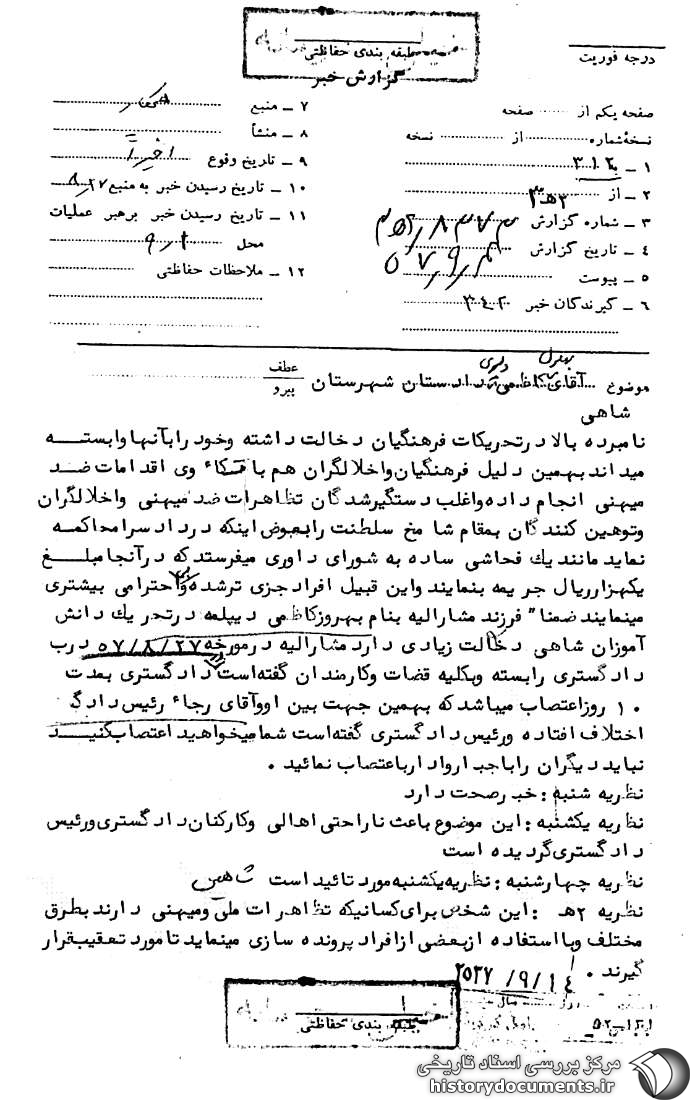 طبقه بندی حفاظتی
گزارش خبر
درجه فوریت
صفحه یکم از ........ صفحه
نسخهٔ شماره ........ از ........ نسخه
۱ ـ به ۳۱۲
۲ ـ از ۳ هـ
۳ ـ شماره گزارش
۴ ـ تاریخ گزارش
۵ ـ پیوست
۶ ـ گیرندگان خبر
۷ ـ منبع همکار
۸ ـ منشأ
۹ ـ تاریخ وقوع اخیراً
۱۰ ـ تاریخ رسیدن خبر به منبع ۸٫۲۷
۱۱ ـ تاریخ رسیدن خبر برهبر عملیات
محل ۹٫۲
۱۲ ـ ملاحظات حفاظتی
موضوع آقای کاظمی دادستان شهرستان
عطف
پیرو
شاهی
نامبرده بالا در تحریکات فرهنگیان دخالت داشته وخود رابآنها وابسته
میداند بهمین دلیل فرهنگیان واخلالگران هم با اتکاء وی اقدامات ضد
میهنی انجام داده واغلب دستگیرشدگان تظاهرات ضد میهنی واخلالگران
وتوهین کنندگان بمقام شامخ سلطنت رابعوض اینکه درداد سرامحاکمه
نماید مانند یك فحاشی ساده به شورای داوری میفرستد که درآنجا مبلغ
یکهزارریال جریمه بنمایند واین قبیل افراد جزی ترشده واحترامی بیشتری
مینمایند ضمنا" فرزند مشارالیه بنام بهروزکاظمی دیپلمه درتحریك دانش
آموزان شاهی دخالت زیادی دارد مشارالیه درمورخه ۵۷/۸/۲۷ درب
دادگستری رابسته وبکلیه قضات وکارمندان گفته است دادگستری بمدت
۱۰ روزاعتصاب میباشد که بهمین جهت بین اووآقای رجاء رئیس دادگ
اختلاف افتاده ورئیس دادگستری گفته است شما میخواهید اعتصاب کنید
نباید دیگران راباجبار وادارباعتصاب نمائید .
نظریه شنبه : خبرصحت دارد
نظریه یکشنبه : این موضوع باعث ناراحتی اهالی وکارکنان دادگستری ورئیس
دادگستری گردیده است
نظریه چهارشنبه : نظریه یکشنبه مورد تائید است شاهین
نظریه ۲هـ : این شخص برای کسانیکه تظاهرات ملی ومیهنی دارند بطرق
مختلف وبااستفاده ازبعضی ازافراد پرونده سازی مینماید تامورد تعقیب قرار
گیرند . ۲۵۳۷/۹/۱۴
طبقه بندی حفاظتی
مرکز بررسی اسناد تاریخی
historydocuments.ir